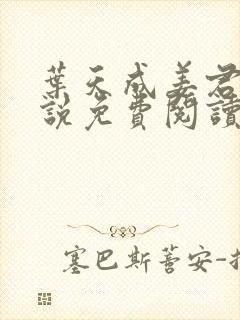 葉天成姜君
說免費閱讀
塞巴斯蒼安-